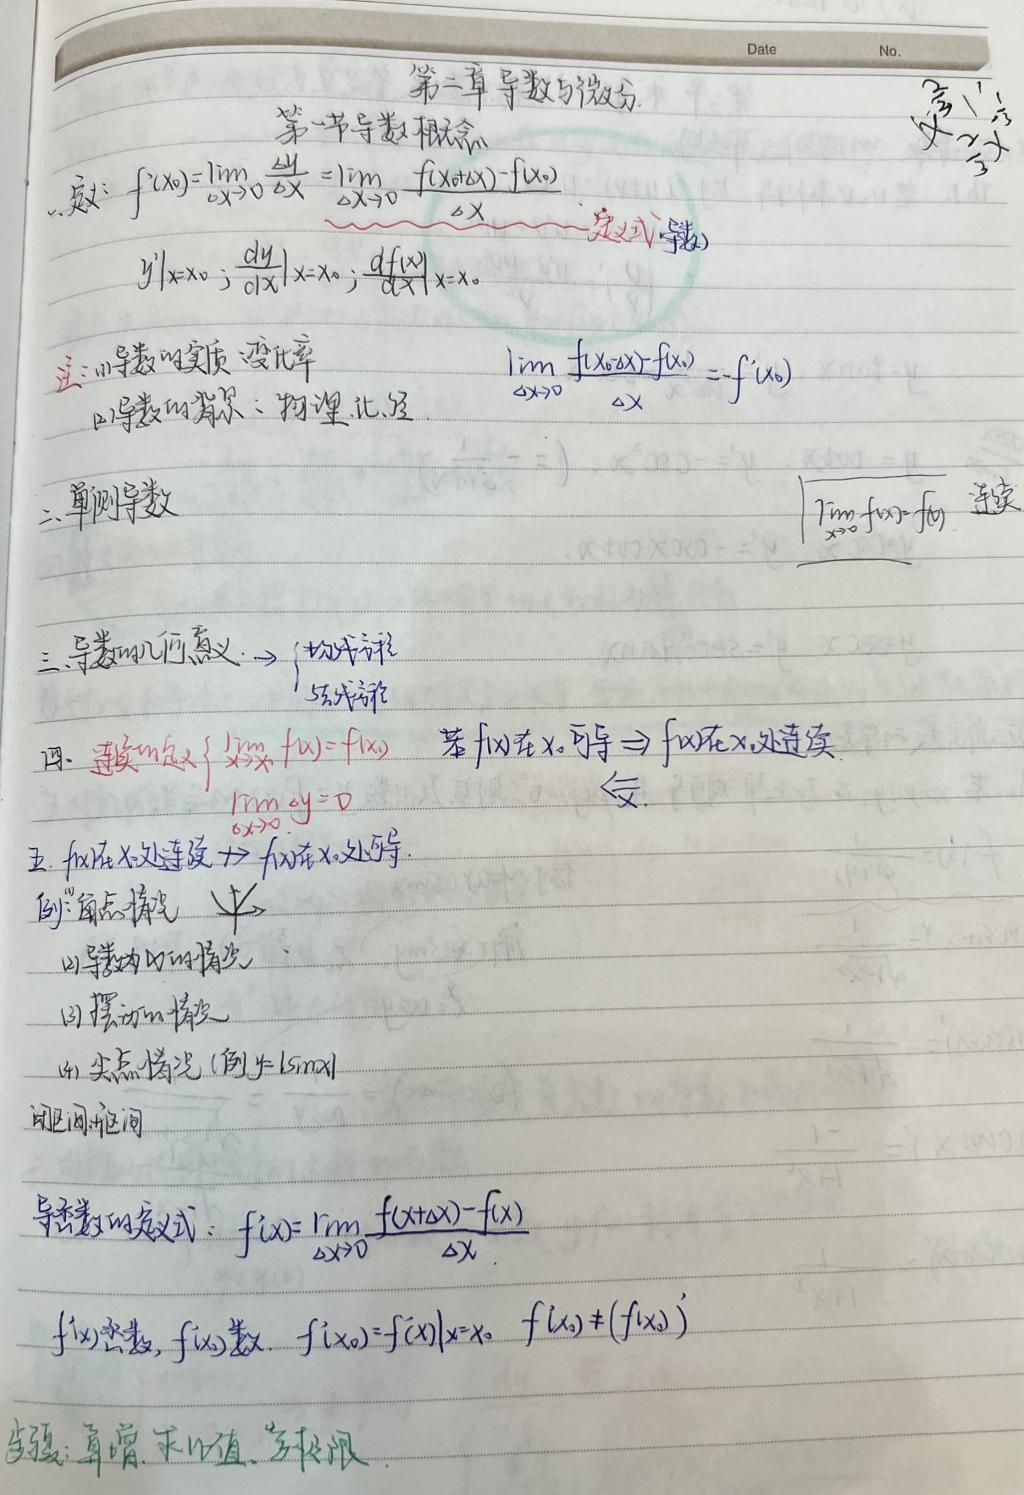 Date No.
第二章 导数与微分
第一节 导数概念
一、定义: f'(x₀)=lim_{Δx→0} Δy/Δx = lim_{Δx→0} (f(x₀+Δx)-f(x₀))/Δx
定义式(导数)
y'|x=x₀ ; dy/dx|x=x₀ ; df(x)/dx|x=x₀
注: (1)导数的实质:变化率
lim_{Δx→0} (f(x₀-Δx)-f(x₀))/Δx = -f'(x₀)
(2)导数的背景: 物理.化.经.
二、单侧导数
lim_{x→0} f(x)=f(0) 连续
三、导数的几何意义. → { 切线方程
法线方程
四、连续的定义 { lim_{x→x₀} f(x)=f(x₀) 若f(x)在x₀可导⇒f(x)在x₀处连续
lim_{Δx→0} Δy=0
五. f(x)在x₀处连续 ↛ f(x)在x₀处可导.
例:(1)角点情况
(2)导数为∞的情况
(3)摆动的情况
(4)尖点情况(例y=|sinx|
闭区间.开区间
导函数的定义式: f'(x)=lim_{Δx→0} (f(x+Δx)-f(x))/Δx.
f'(x)函数, f'(x₀)数. f'(x₀)=f'(x)|x=x₀ f'(x₀)≠(f(x₀))'
步骤: 算增.求比值、求极限